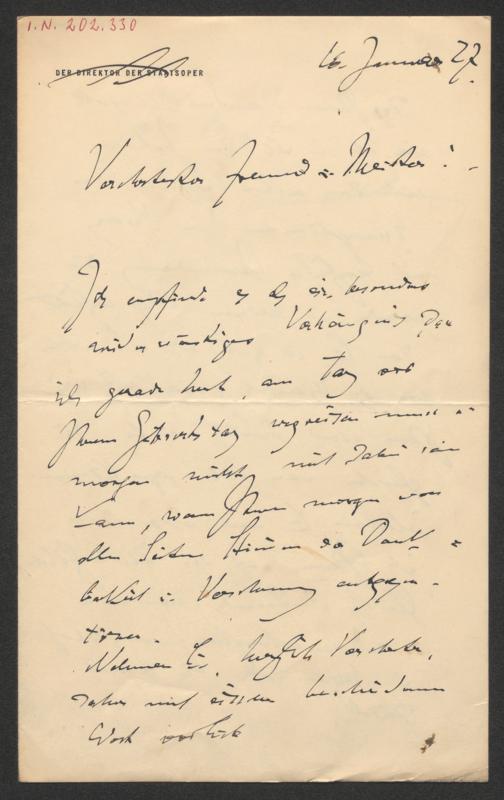 I.N. 202.330
DER DIREKTOR DER STAATSOPER
16. Januar 27.
Verehrtester Freund u. Meister!
Ich empfinde es als ein besonders
widerwärtiges Verhängnis, dass
ich gerade heute, am Tag vor
Ihrem Geburtstag wegreisen muss u.
morgen nicht mit dabei sein
kann, wenn Ihnen morgen von
allen Seiten Stimmen der Dank-
barkeit u. Verehrung entgegen-
tönen.
Nehmen Sie, herzlich Verehrter,
daher mit diesem bescheidenen
Wort vorlieb